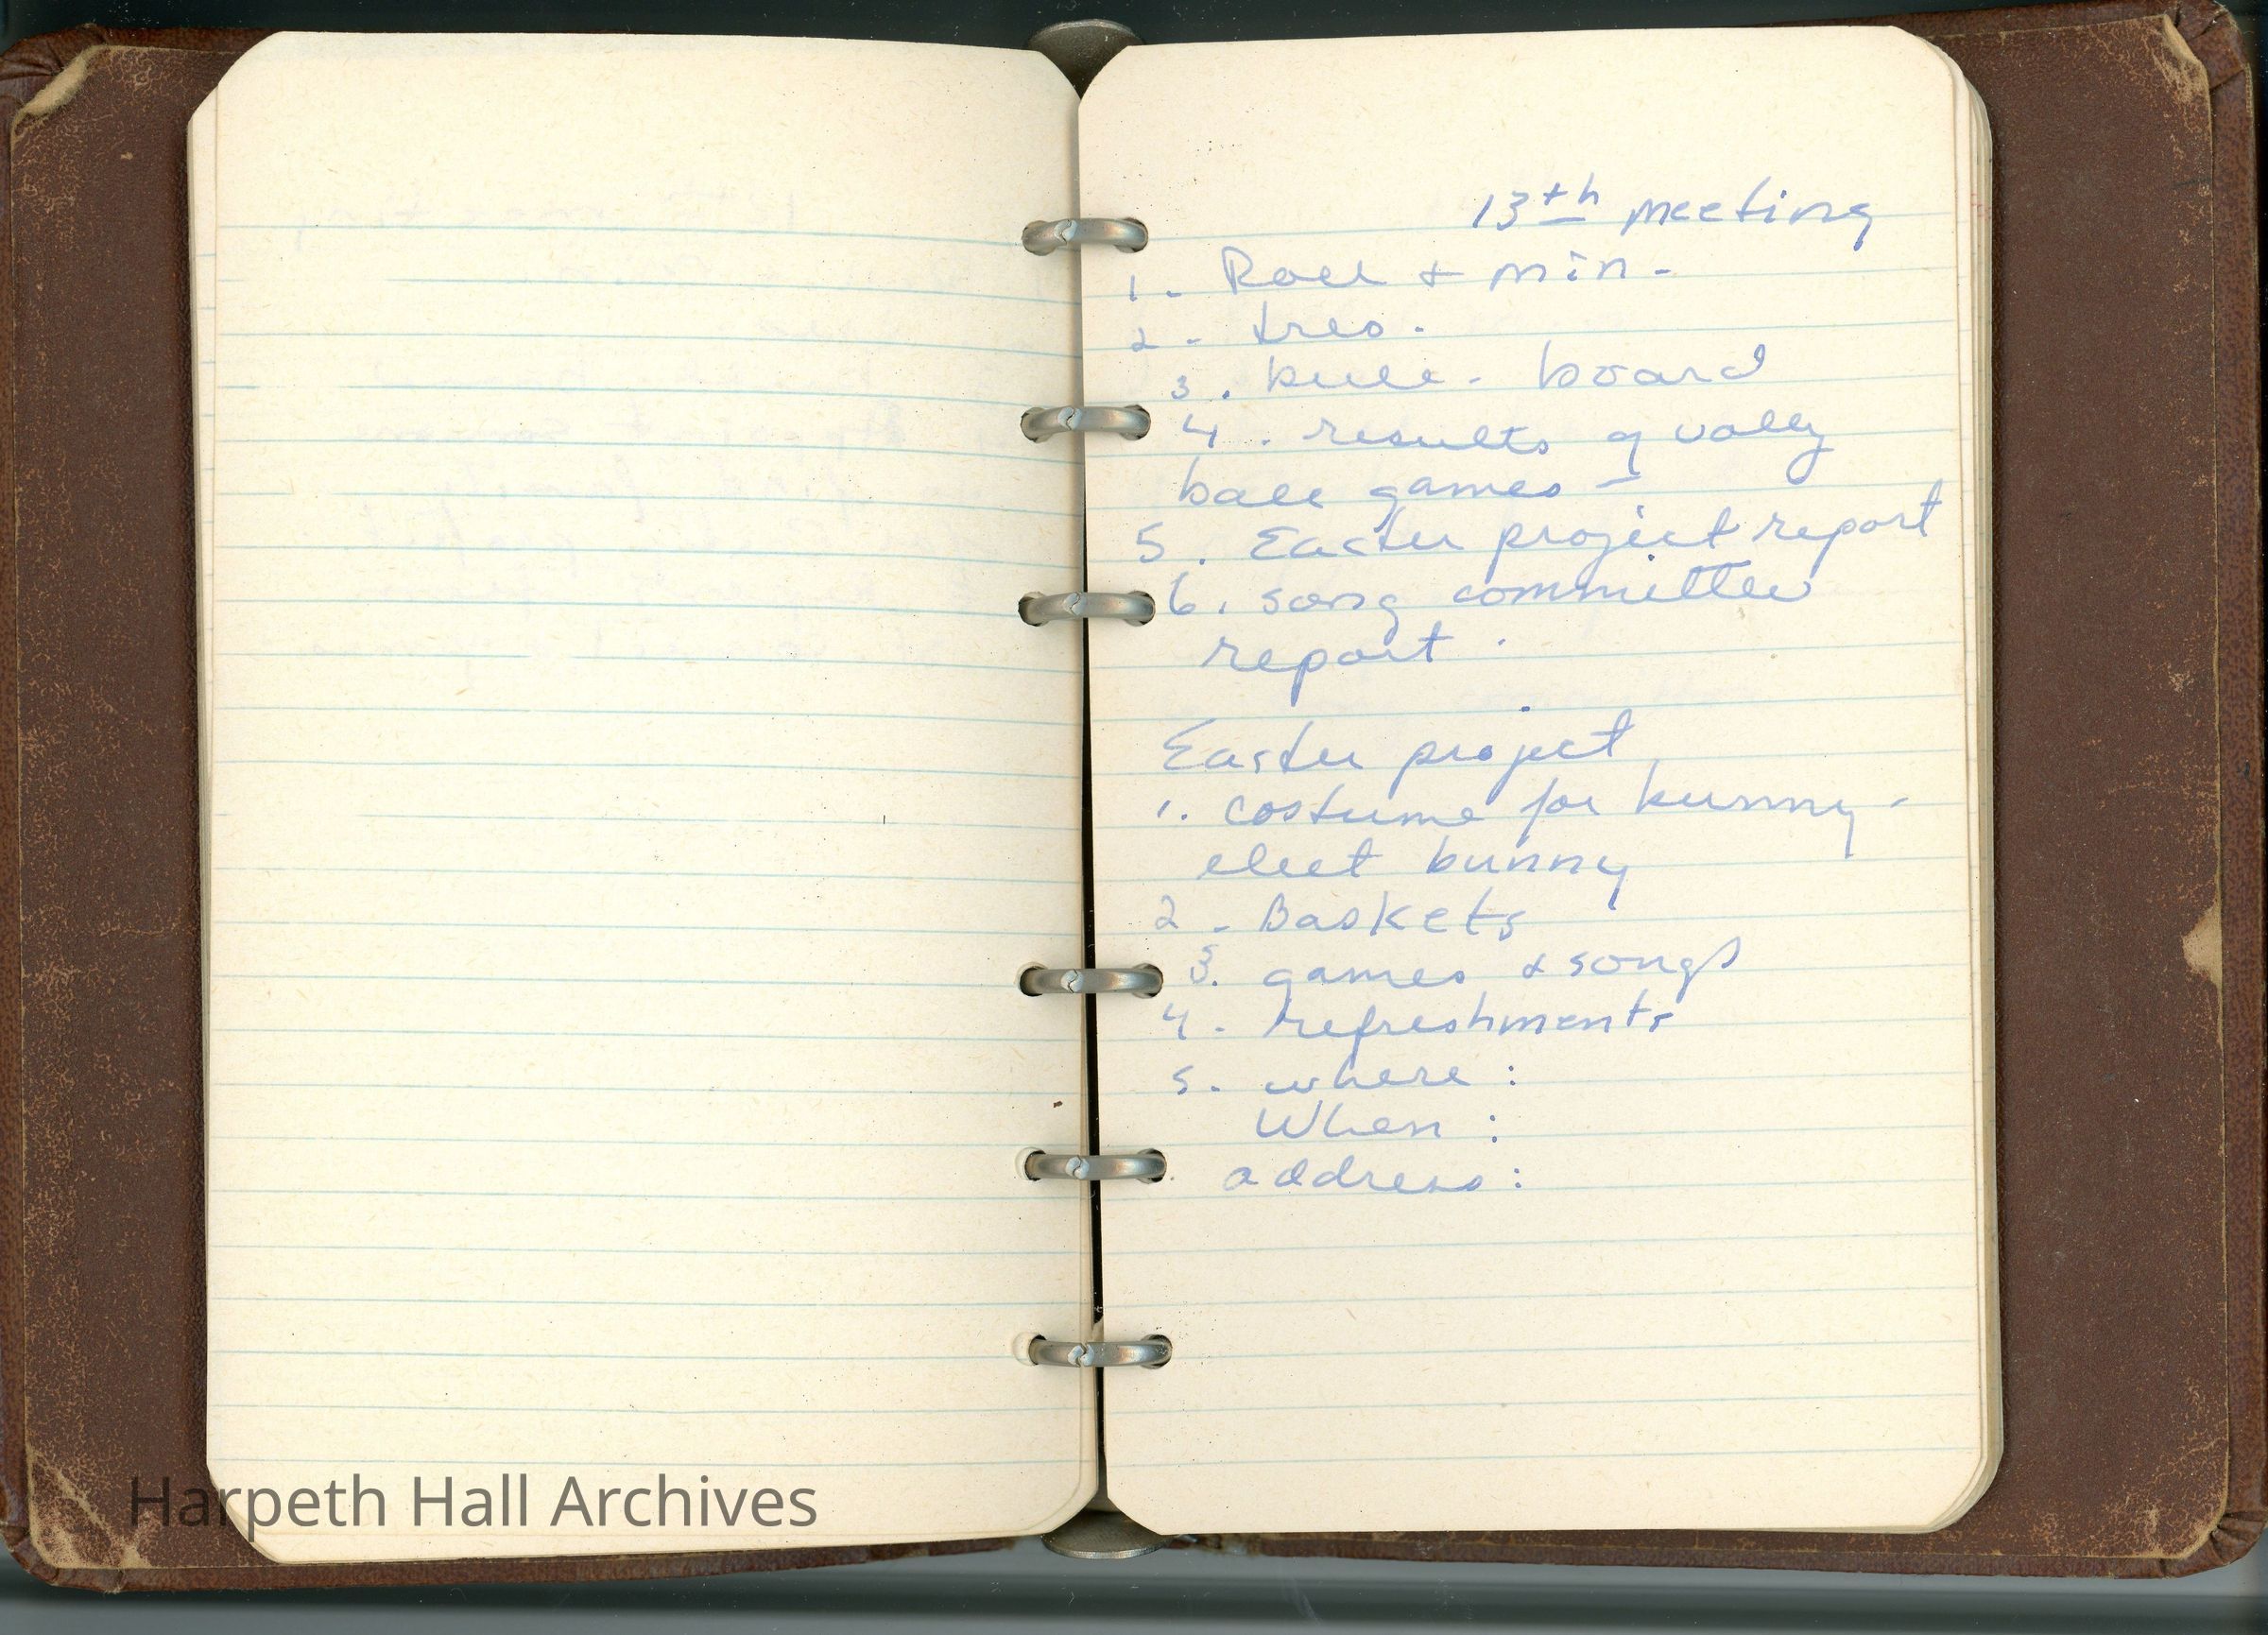 13th meeting
1. Roll + min.
2. tres.
3. bull. board
4. results of volly
ball games -
5. Easter project report
6. song committee
report.
Easter project
1. costume for bunny -
elect bunny
2. Baskets
3. games & songs
4. refreshments
5. where:
When:
address:
Harpeth Hall Archives